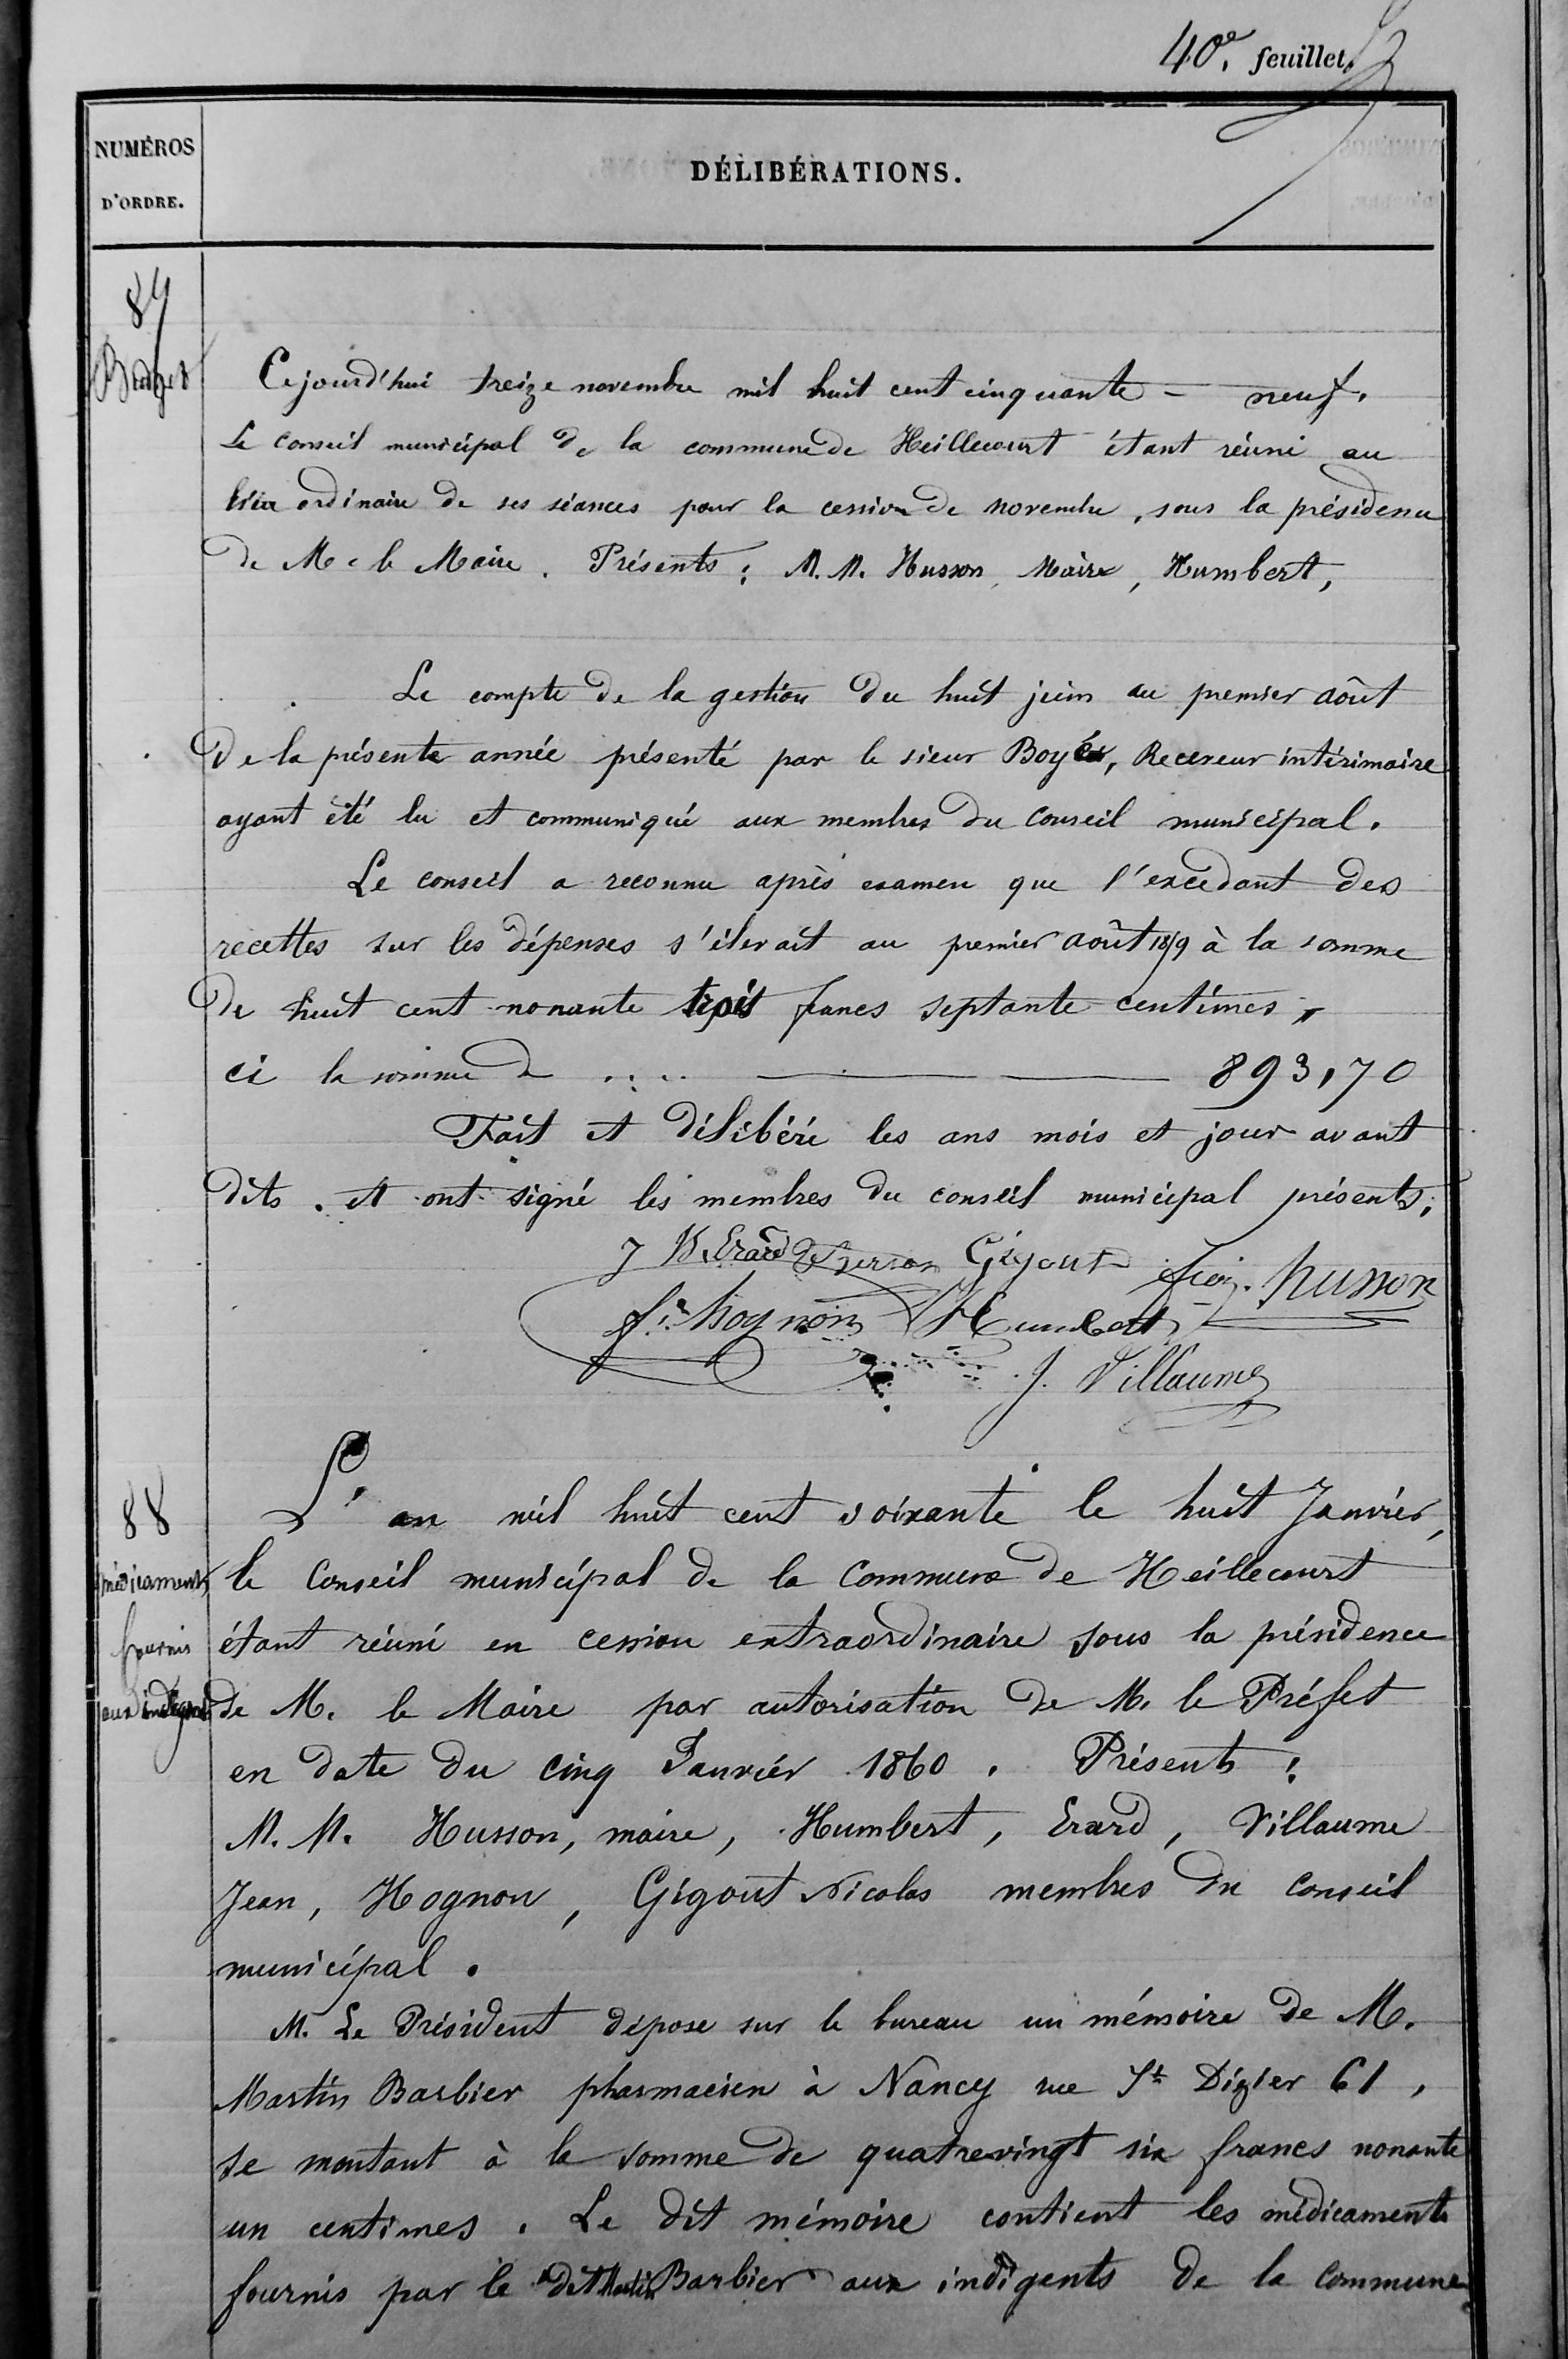 40e. feuillet.
NUMÉROS
D'ORDRE.
DÉLIBÉRATIONS.
87
Budget
Cejourd'hui treize novembre mil huit cent cinquante - neuf.
Le Conseil municipal de la commune de Heillecourt étant réuni au
lieu ordinaire de ses séances pour la cession de novembre, sous la présidence
de M. le Maire. Présents : M.M. Husson, Maire, Humbert,
Le compte de la gestion du huit juin au premier août
De la présente année présenté par le sieur Boyé, Receveur intérimaire
ayant été lu et communiqué aux membres du Conseil municipal.
Le conseil a reconnu après examen que l'excedant des
recettes sur les dépenses s'élevait au premier août 1859 à la somme
De huit cent nonante trois francs septante centimes,
ci la somme de .... 893,70
Fait et délibéré les ans mois et jour avant
dits. et ont signé les membres du conseil municipal présents;
J B. Erard Gigout husson
fs. hognon Humbert
J. Villaume
88
médicaments
fournis
aux indigents
L'an mil huit cent soixante le huit Janvier,
le Conseil municipal de la Commune de Heillecourt
étant réuni en cession extraordinaire sous la présidence
de M. le Maire par autorisation de M. le Préfet
en date du cinq Janvier 1860. Présents :
M. M. Husson, maire, Humbert, Erard, Villaume
Jean, Hognon, Gigout Nicolas membres du Conseil
municipal.
M. Le Président dépose sur le bureau un mémoire de M.
Martin Barbier pharmacien à Nancy rue St Dizier 61,
se montant à la somme de quatrevingt six francs nonante
un centimes. Le dit mémoire contient les médicaments
fournis par le dit Martin Barbier aux indigents de la Commune